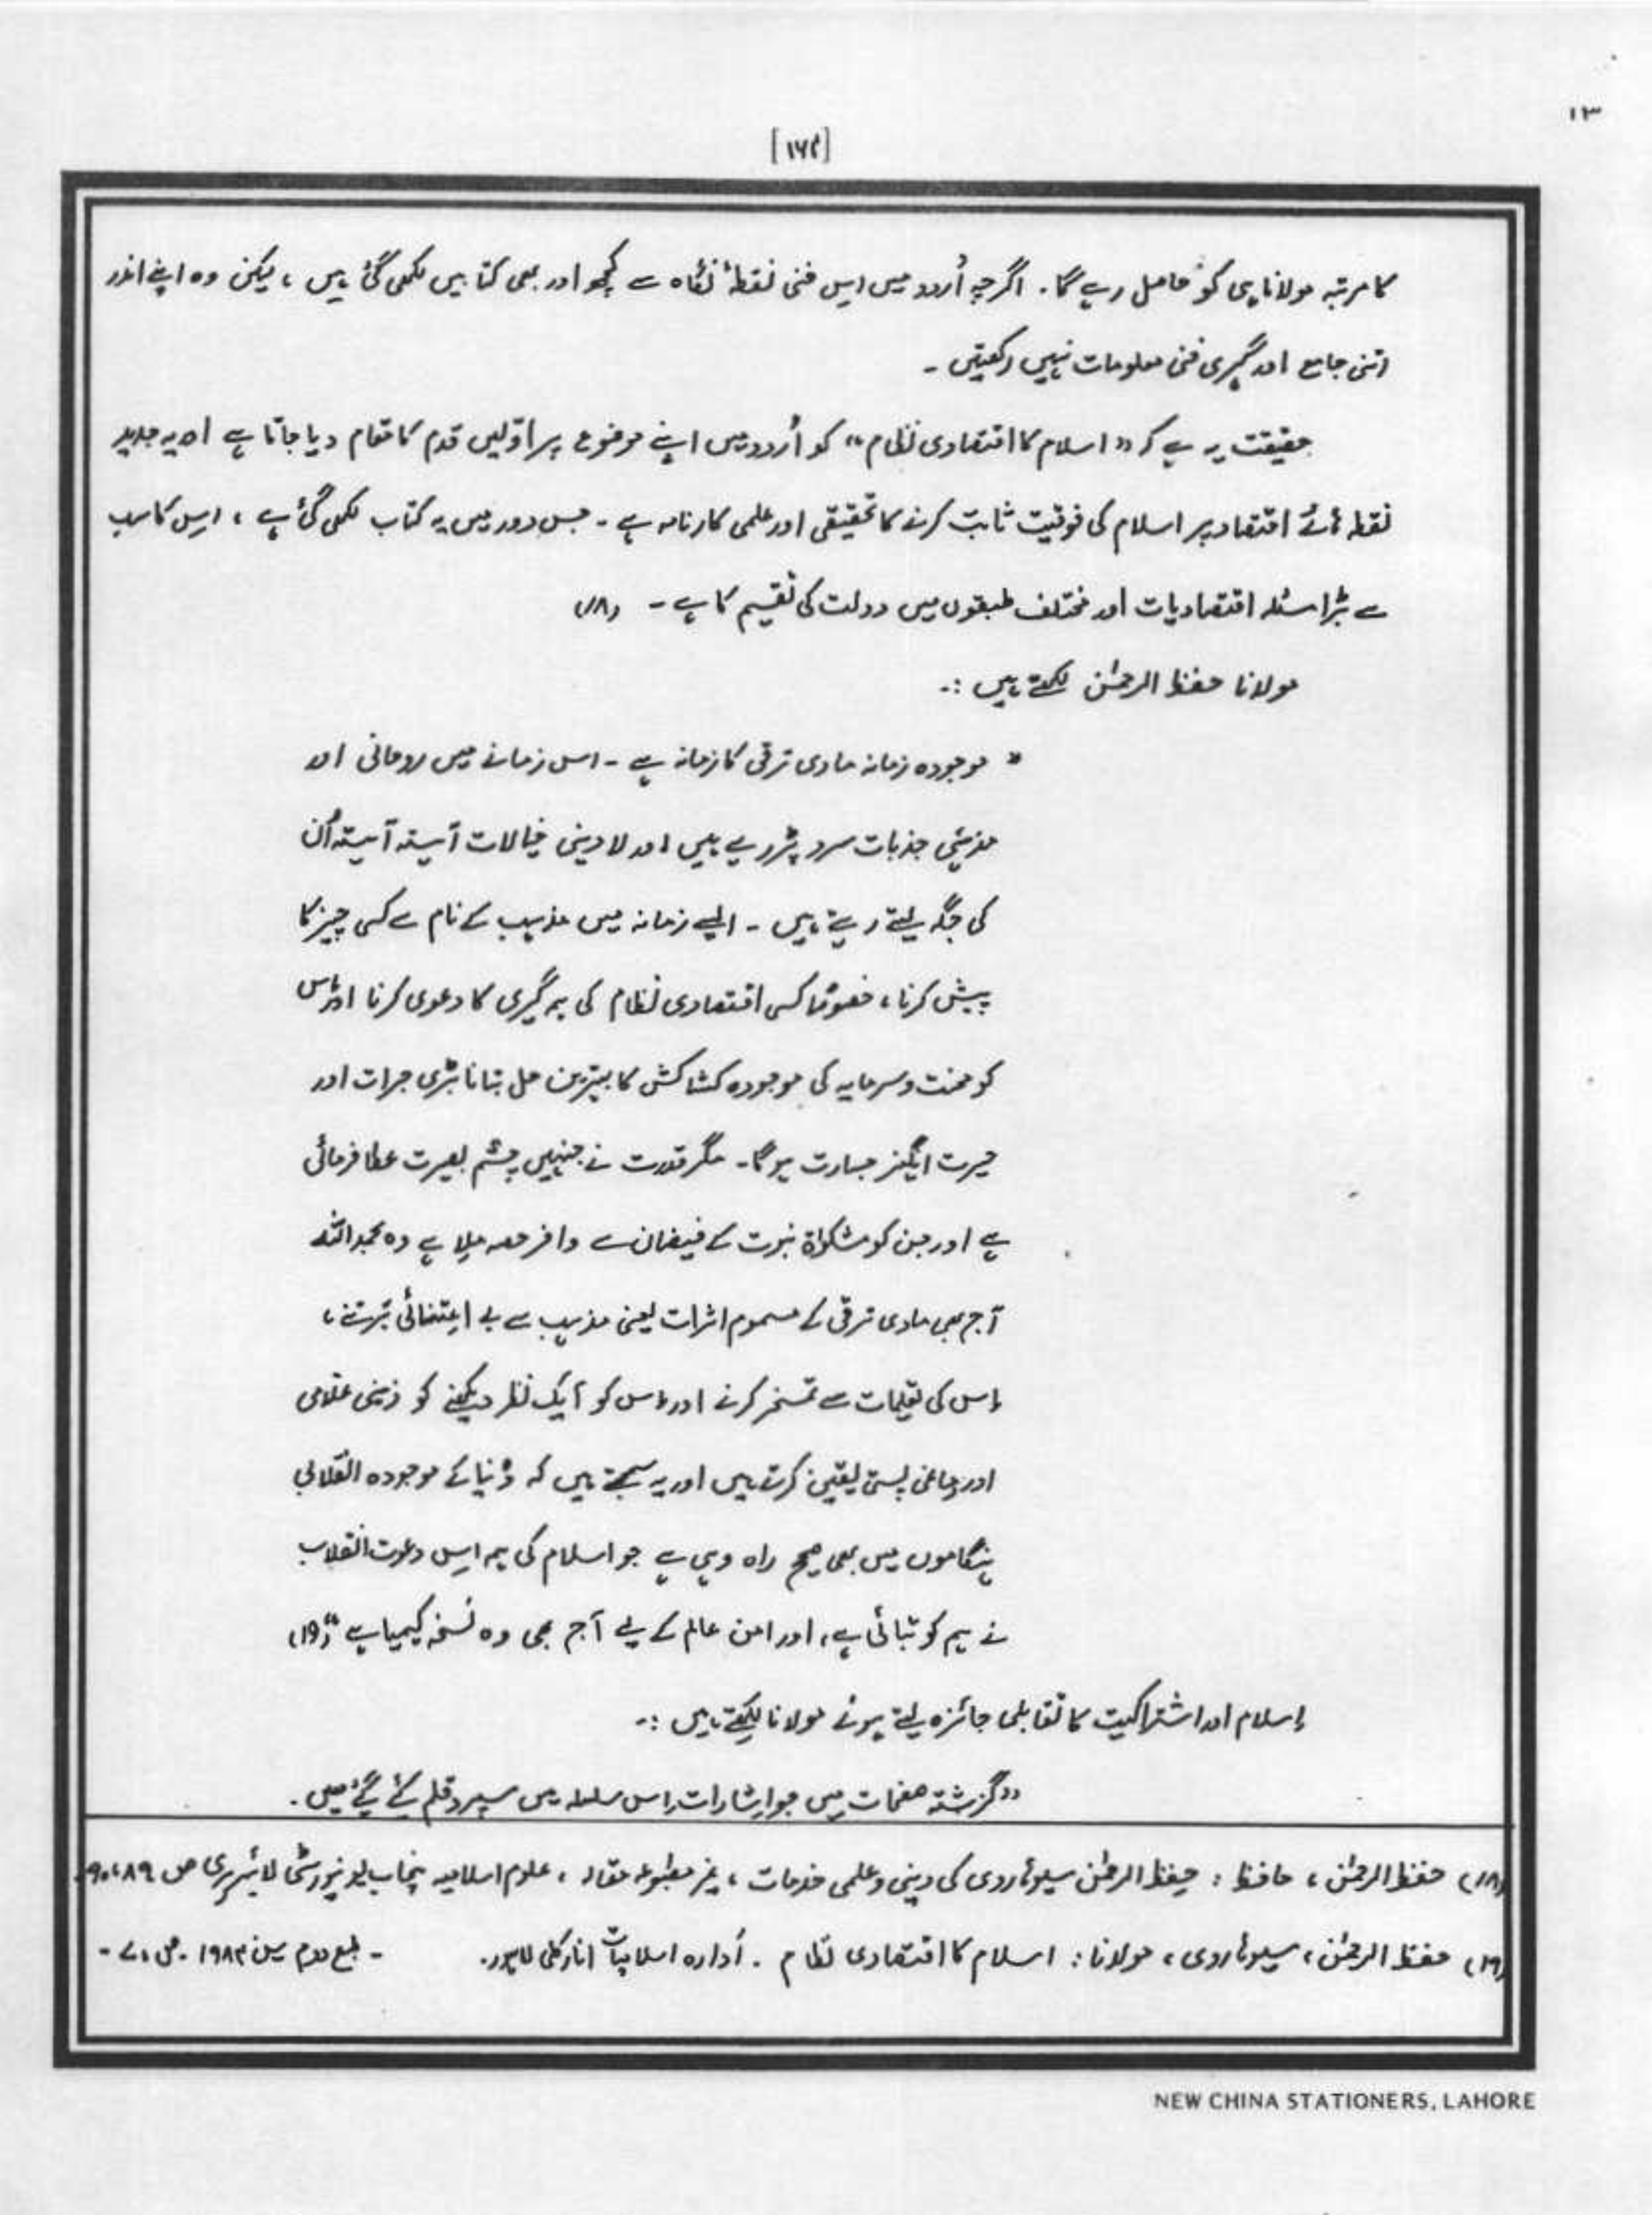 ۱۳
[۱۶۴]
کا مرتبہ مولانا ہی کو حاصل رہے گا۔ اگرچہ اُردو میں اِس فنی نقطۂ نگاہ سے کچھ اور بھی کتابیں لکھی گئی ہیں ، لیکن وہ اپنے اندر
اتنی جامع اور گہری فنی معلومات نہیں رکھتیں ۔
حقیقت یہ ہے کہ "اسلام کا اقتصادی نظام" کو اُردو میں اپنے موضوع پر اوّلیں قدم کا مقام دیا جاتا ہے اور یہ جدید
نقطہ ہائے اقتصاد پر اسلام کی فوقیت ثابت کرنے کا تحقیقی اور علمی کارنامہ ہے ۔ جس دور میں یہ کتاب لکھی گئی ہے ، اِس کا سب
سے بڑا مسئلہ اقتصادیات اور مختلف طبقوں میں دولت کی تقسیم کا ہے ۔ (۱۸)
مولانا حفظ الرحمٰن لکھتے ہیں :۔
" موجودہ زمانہ مادی ترقی کا زمانہ ہے ۔ اس زمانے میں روحانی اور
مذہبی جذبات سرد پڑ رہے ہیں اور لادینی خیالات آہستہ آہستہ اُن
کی جگہ لیتے رہتے ہیں ۔ ایسے زمانہ میں مذہب کے نام سے کسی چیز کا
پیش کرنا ، خصوصًا کسی اقتصادی نظام کی ہمہ گیری کا دعوی کرنا اور اِس
کو محنت و سرمایہ کی موجودہ کشاکش کا بہترین حل بتانا بڑی جرات اور
حیرت انگیز جسارت ہو گا ۔ مگر قدرت نے جنہیں چشم بصیرت عطا فرمائی
ہے اور جن کو مشکواۃ نبوت کے فیضان سے وافر حصہ ملا ہے وہ بحمداللہ
آج بھی مادی ترقی کے مسموم اثرات یعنی مذہب سے بے اعتنائی برتنے ،
اِس کی تعلیمات سے تمسخر کرنے اور اِس کو ایک نظر دیکھنے کو ذہنی غلامی
اور دماغی پستی یقین کرتے ہیں اور یہ سمجھتے ہیں کہ دُنیا کے موجودہ انقلابی
ہنگاموں میں بھی صحیح راہ وہی ہے جو اسلام کی ہمہ اِس دعوت انقلاب
نے ہم کو بتائی ہے ، اور امن عالم کے لیے آج بھی وہ نُسخہ کیمیا ہے " (۱۹)
اِسلام اور اشتراکیت کا تقابلی جائزہ لیتے ہوئے مولانا لکھتے ہیں :۔
"گزشتہ صفحات میں جو اِشارات اِس سلسلہ میں سپرد قلم کئے گئے ہیں ۔
(۱۸) حفظ الرحمٰن ، حافظ : حِفظ الرحمٰن سیوہاروی کی دینی و علمی خدمات ، غیر مطبوعہ مقالہ ، علوم اسلامیہ پنجاب یونیورسٹی لائبریری ص ۸۹ ، ۹۰
(۱۹) حفظ الرحمٰن ، سیوہاروی ، مولانا : اسلام کا اقتصادی نظام ۔ اَدارہ اسلامیات انارکلی لاہور ۔ طبع دوم سن ۱۹۸۴ ۔ ص ۷ ۔
NEW CHINA STATIONERS, LAHORE